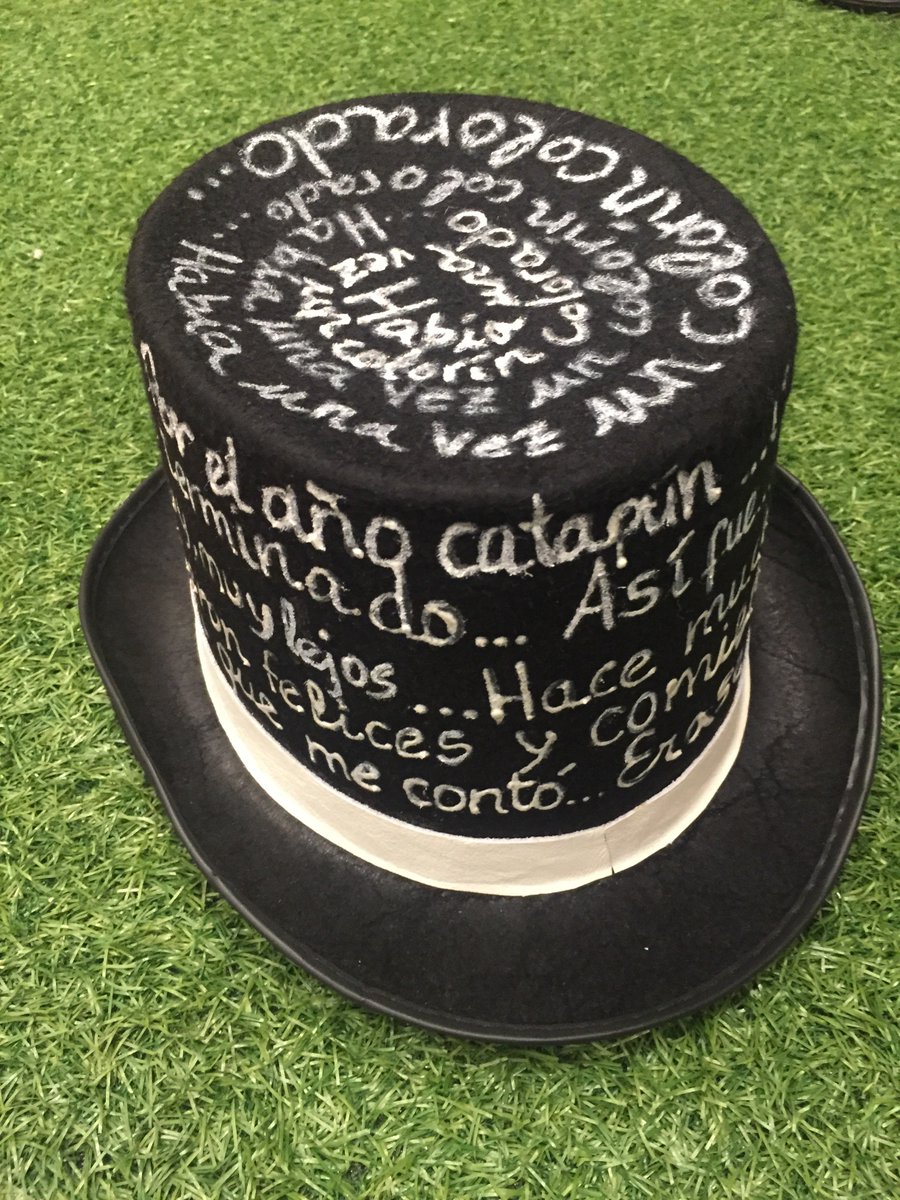 Había una vez un Colorín colorado...
Había una vez un colorín colorado...
Había una vez un colorín colorado
Por el año catapún ...
terminado... Así fue
muy lejos ...Hace
felices y
que me contó... Erase